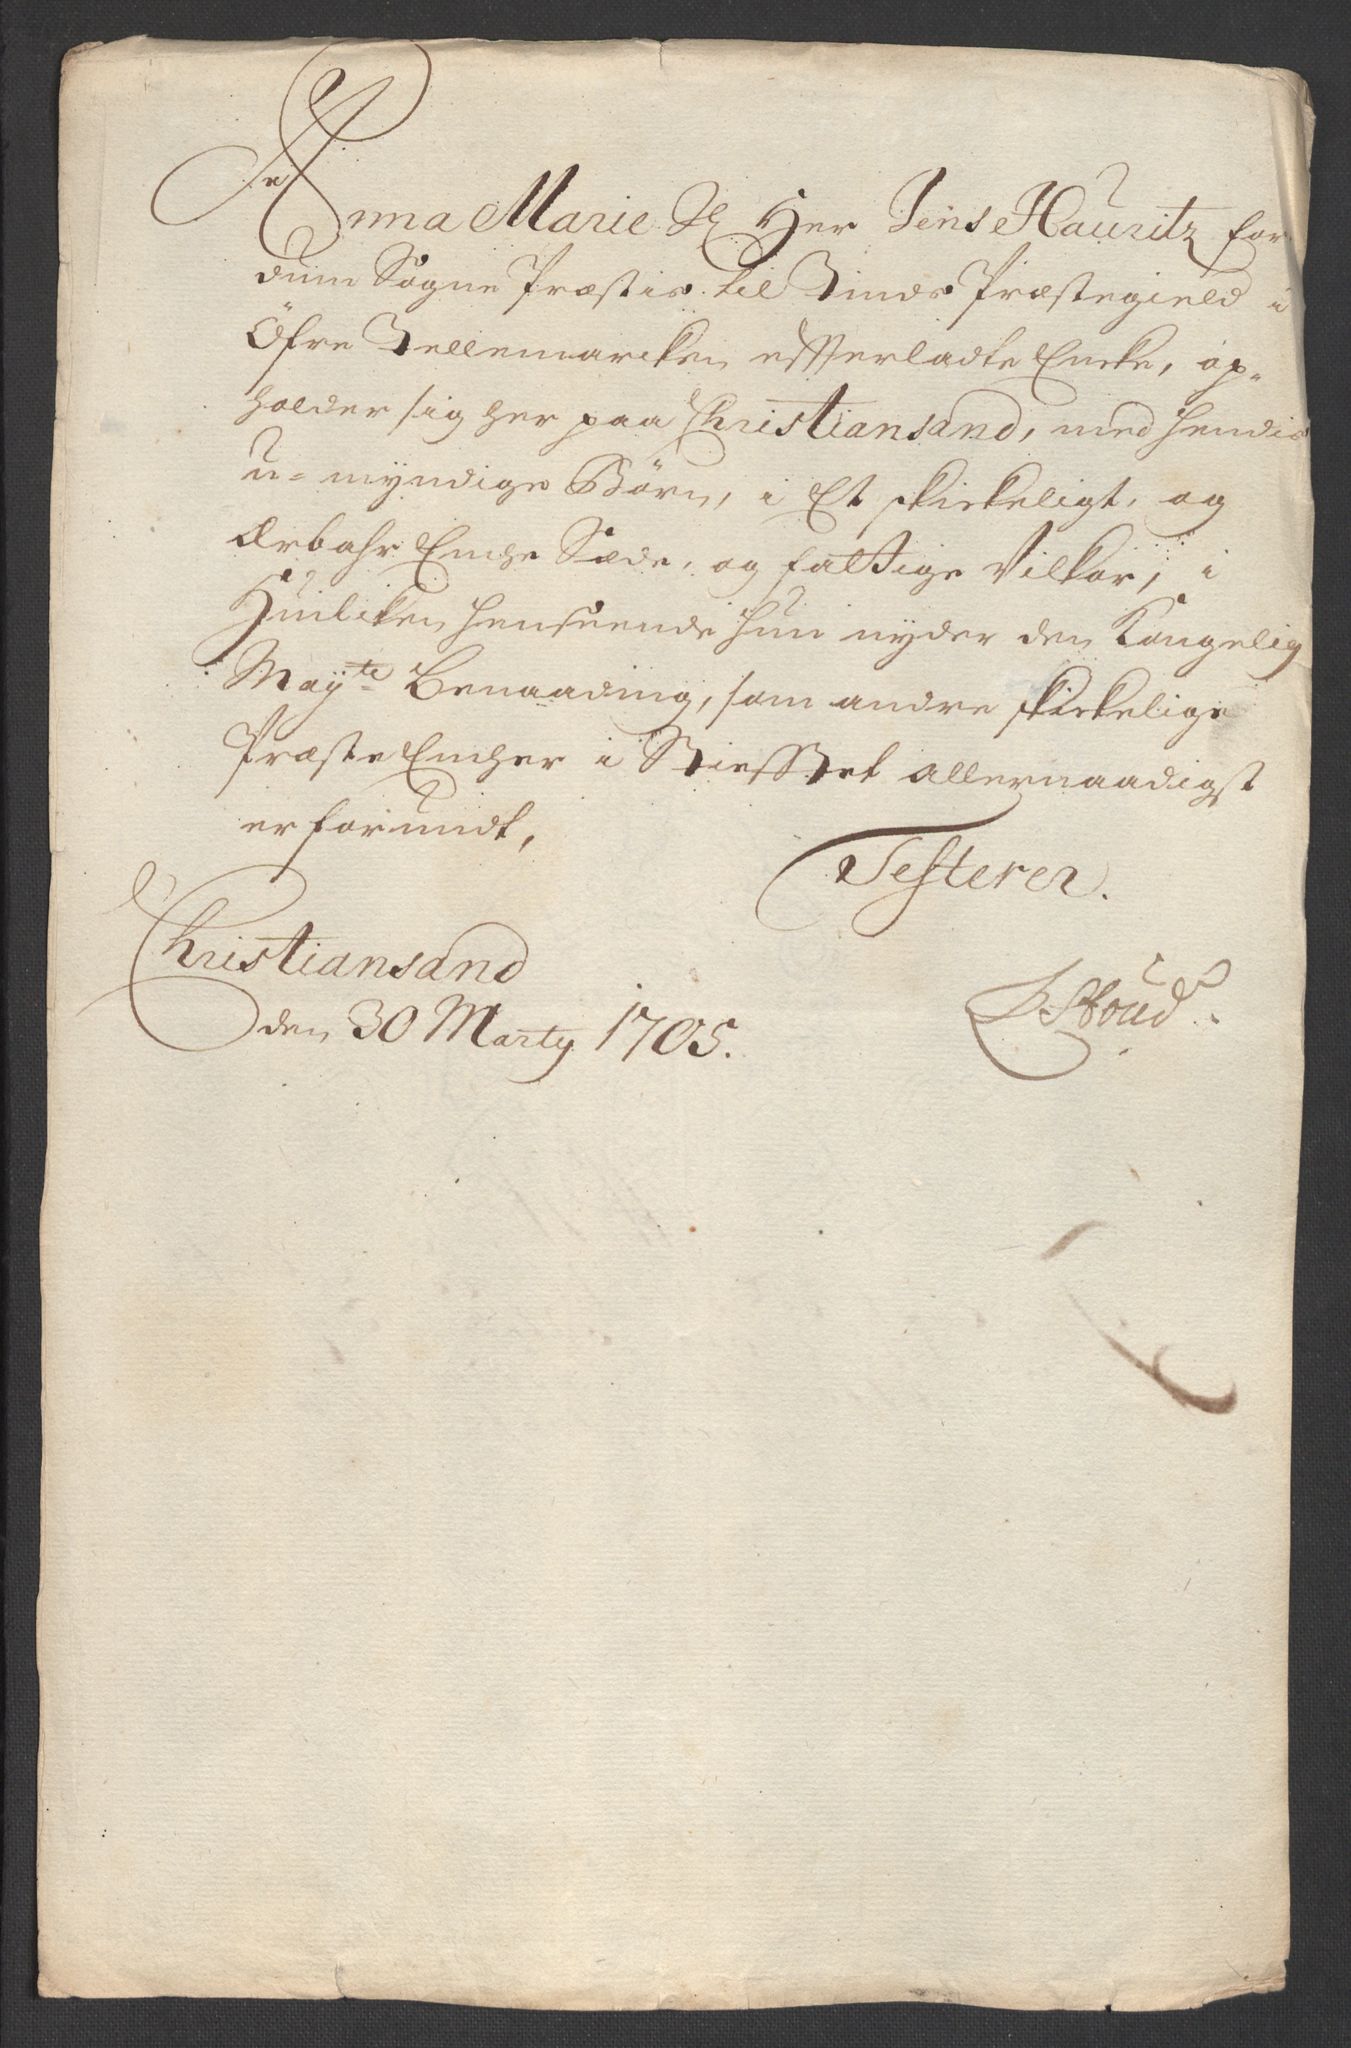 Anna Marie Sl Her Jens Hauritz for
dum Sogne Præstis til Tinds Præstegield i
Öfre Tellemarcken effterladte Encke, op=
holder sig her paa Christiansand, med hendis
u=myndige Börn, i Et skickeligt, og
Ærbahr Encke Sæde, og fattige Vilkor, i
Huilcken henseende hun nyder den Kongelig
Mayte Benaading, som andre skickelige
Præste Encker i Stifftet allernaadigst
er forundt,
Testerer.
Christiansand
den 30 Marty 1705.
Stoud